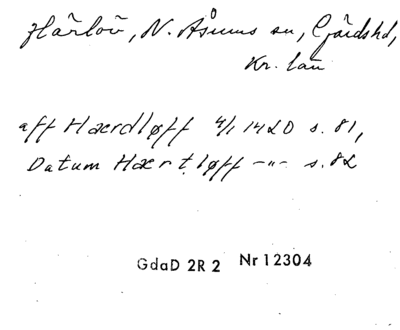 Härlöv, N. Åsums sn, Gärdshd,
Kr. län
aff Hærdløff 4/1 1420 s. 81,
Datum Hærtløff –"– s. 82
GdaD 2R2 Nr 12304